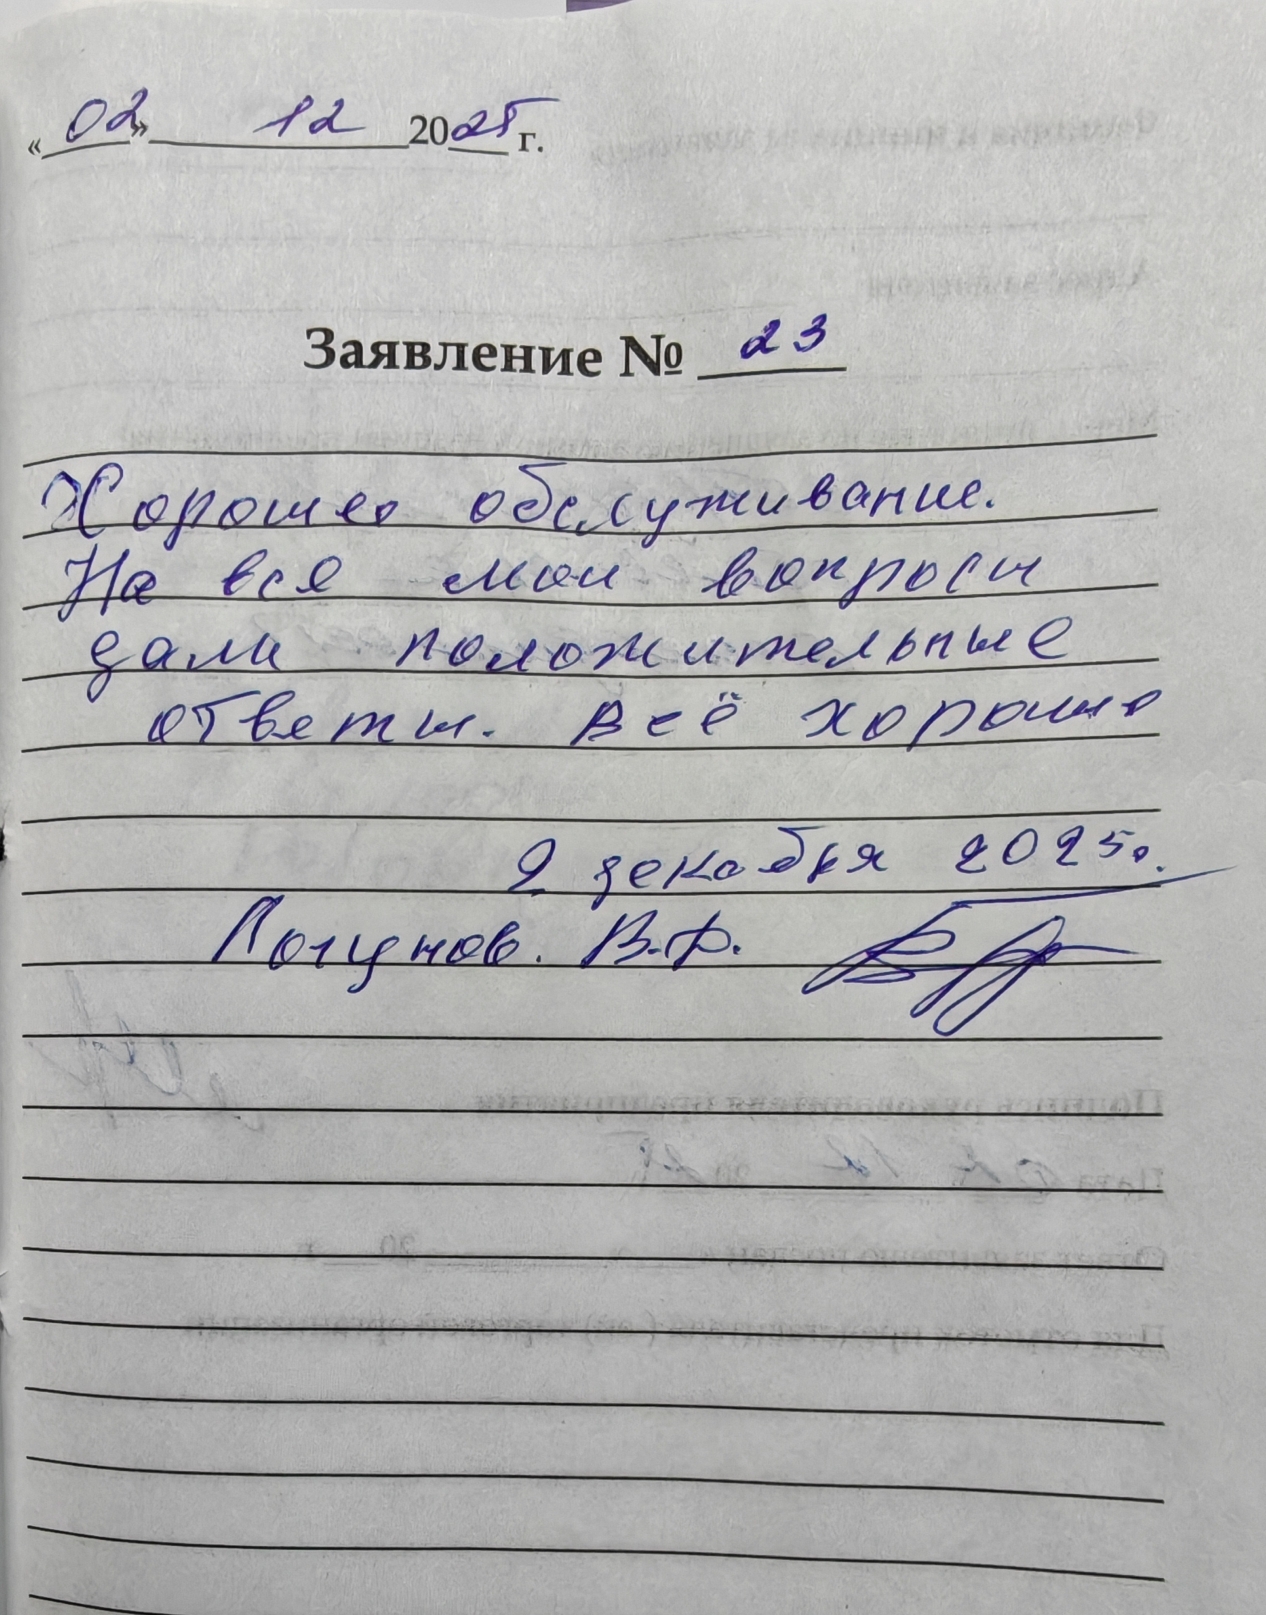 «02» 12 2025 г.
Заявление № 23
Хорошее обслуживание.
На все мои вопросы
дали положительные
ответы. Всё хорошо
2 декабря 2025г.
В.Ф.